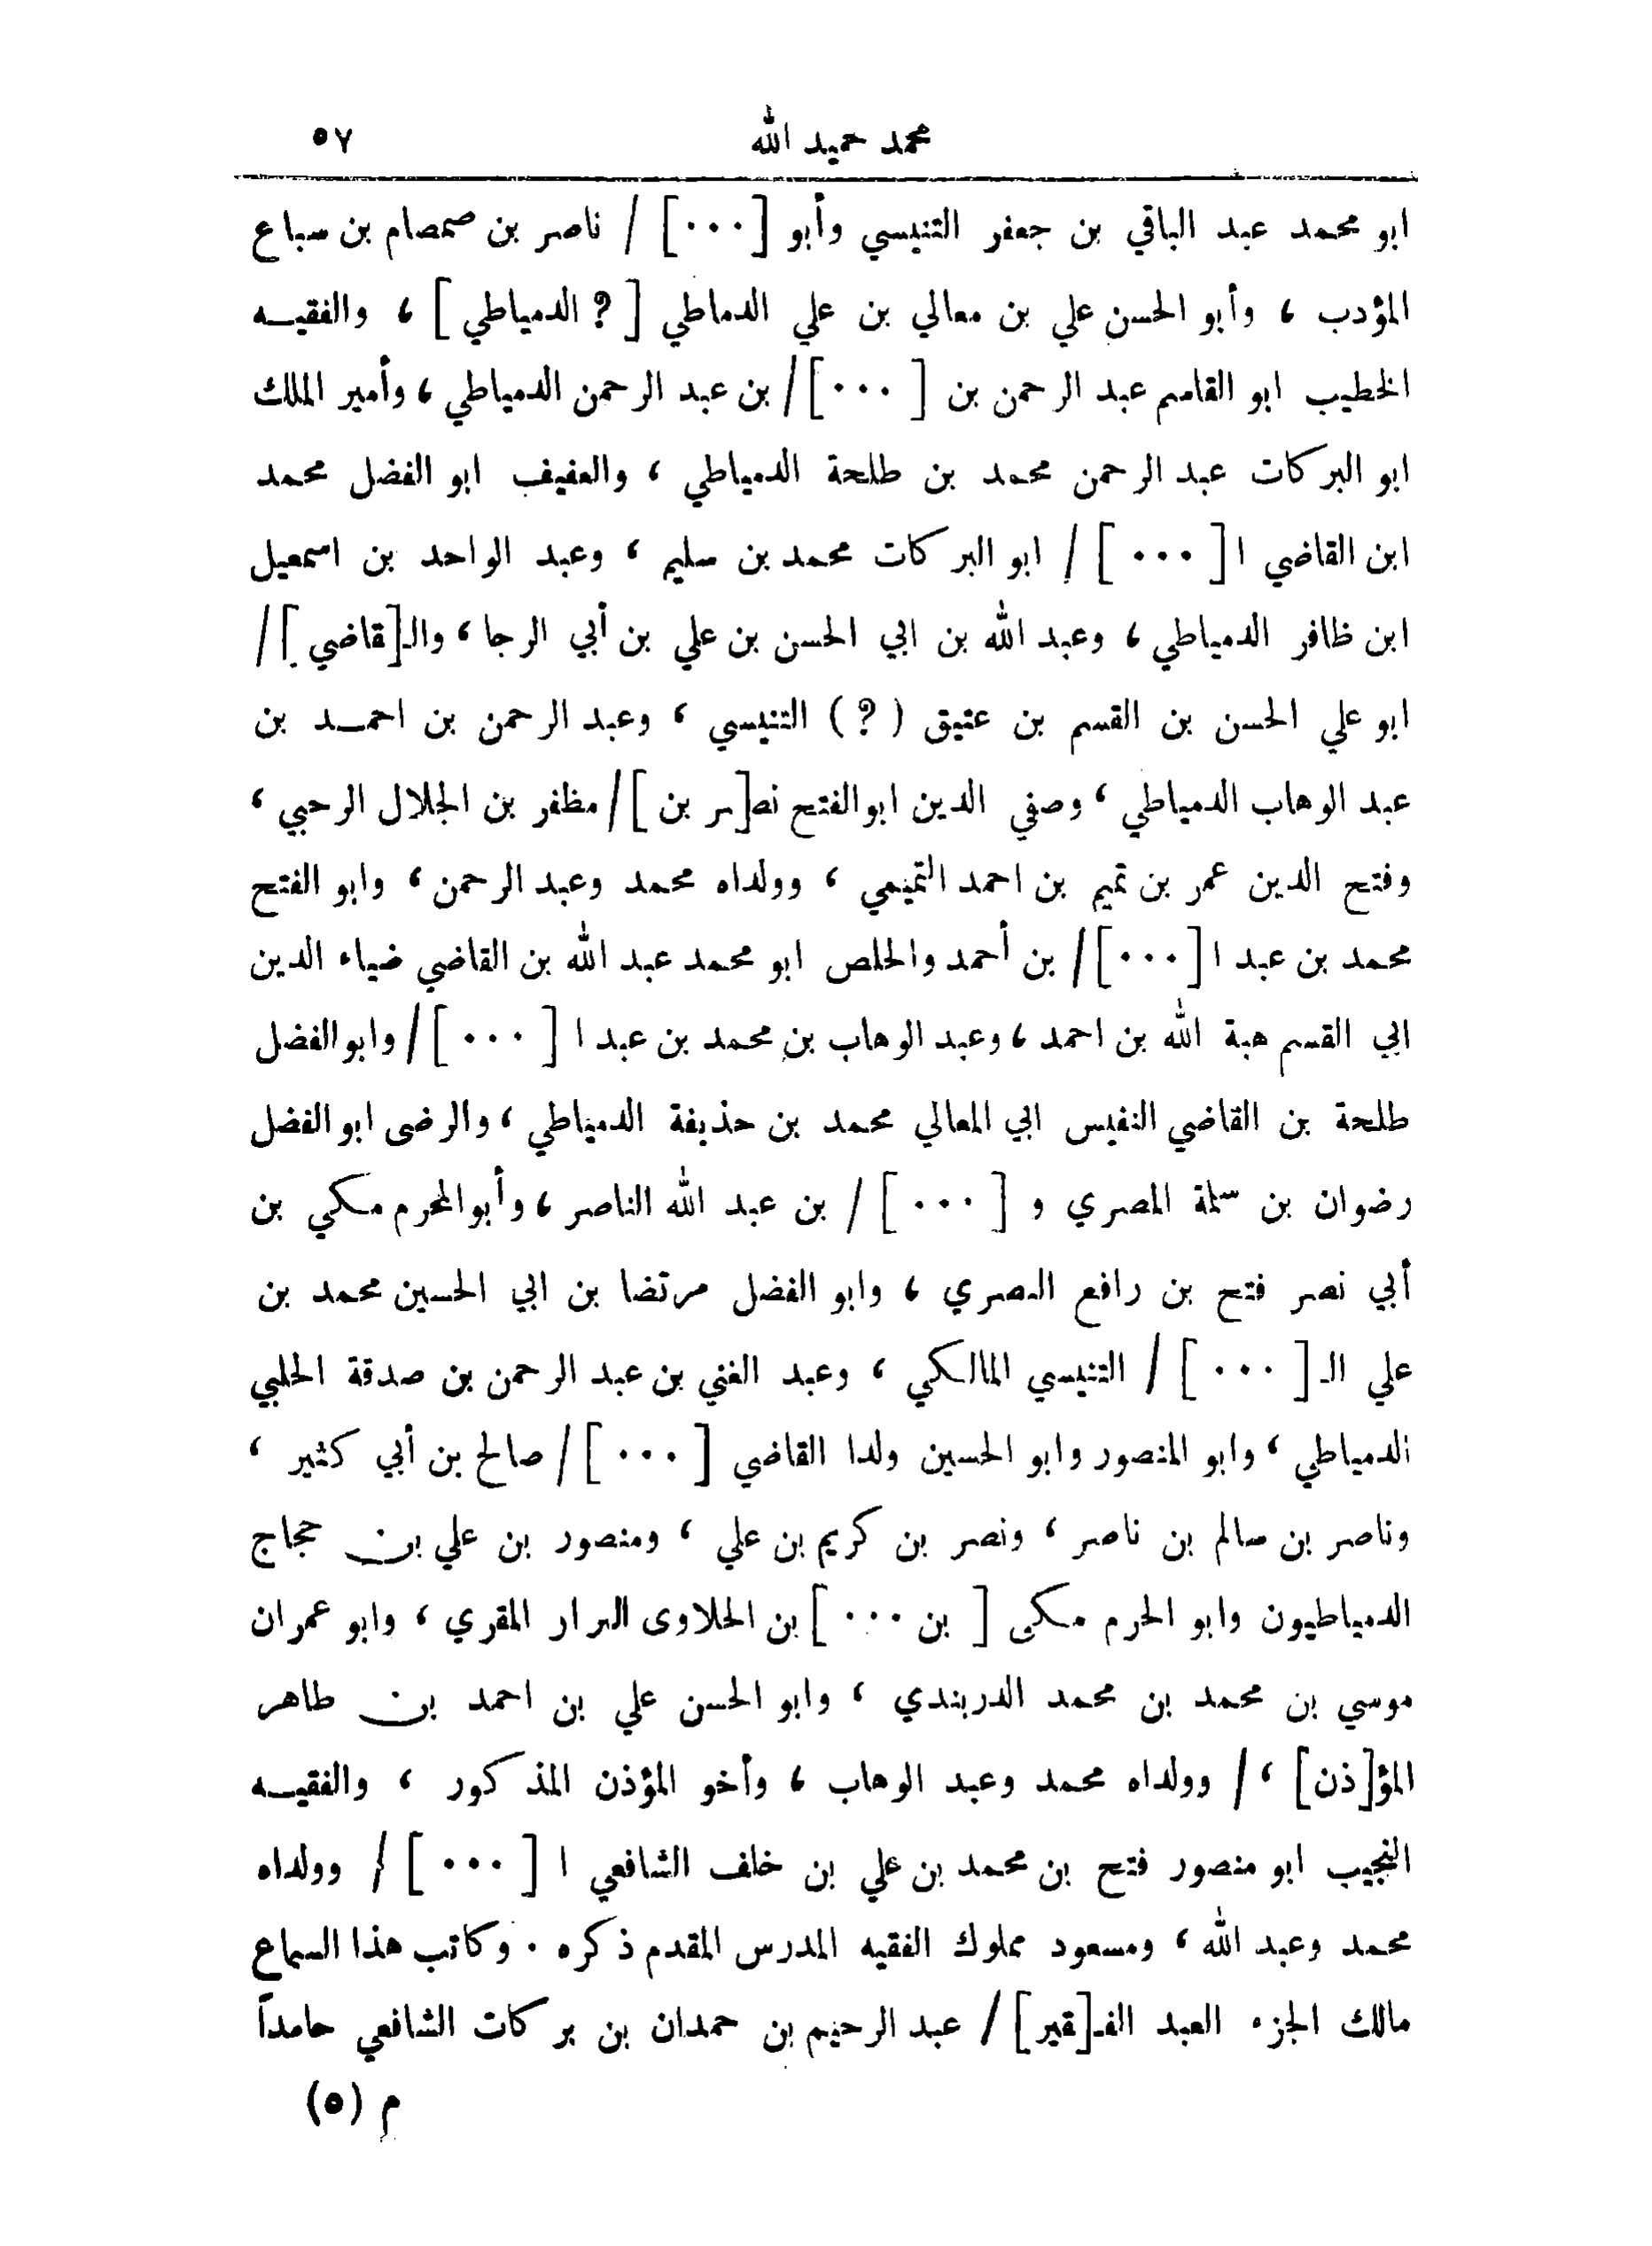 محمد حميد الله ٥٧
ابو محمد عبد الباقي بن جعفر التنيسي وأبو [٠٠٠] / ناصر بن صمصام بن سباع
المؤدب ، وأبو الحسن علي بن معالي بن علي الدماطي [ ؟ الدمياطي ] ، والفقيـه
الخطيب ابو القاسم عبد الرحمن بن [ ٠٠٠ ]/ بن عبد الرحمن الدمياطي ، وأمير الملك
ابو البركات عبد الرحمن محمد بن طلحة الدمياطي ، والعفيف ابو الفضل محمد
ابن القاضي ا [ ٠٠٠ ] / ابو البركات محمد بن سليم ، وعبد الواحد بن اسمعيل
ابن ظافر الدمياطي ، وعبد الله بن ابي الحسن بن علي بن أبي الرجا ، والـ[قاضي ]/
ابو علي الحسن بن القسم بن عتيق ( ؟ ) التنيسي ، وعبد الرحمن بن احمـد بن
عبد الوهاب الدمياطي ، وصفي الدين ابو الفتح نصـ[ـر بن ]/ مظفر بن الجلال الرحبي ،
وفتح الدين عمر بن تميم بن احمد التميمي ، وولداه محمد وعبد الرحمن ، وابو الفتح
محمد بن عبد ا [٠٠٠]/ بن أحمد والحلص ابو محمد عبد الله بن القاضي ضياء الدين
ابي القسم هبة الله بن احمد ، وعبد الوهاب بن محمد بن عبد ا [ ٠٠٠ ]/ وابو الفضل
طلحة بن القاضي النفيس ابي المعالي محمد بن حذيفة الدمياطي ، والرضى ابو الفضل
رضوان بن سلمة المصري و [ ٠٠٠ ] / بن عبد الله الناصر ، وأبو المحرم مكي بن
أبي نصر فتح بن رافع المصري ، وابو الفضل مرتضا بن ابي الحسين محمد بن
علي الـ [ ٠٠٠ ] / التنيسي المالكي ، وعبد الغني بن عبد الرحمن بن صدقة الحلبي
الدمياطي ، وابو المنصور وابو الحسين ولدا القاضي [ ٠٠٠ ]/ صالح بن أبي كثير ،
وناصر بن سالم بن ناصر ، ونصر بن كريم بن علي ، ومنصور بن علي بن حجاج
الدمياطيون وابو الحرم مكى [ بن ٠٠٠ ] بن الحلاوى المقري ، وابو عمران
موسي بن محمد بن محمد الدربندي ، وابو الحسن علي بن احمد بن طاهر
المؤ[ذن] ، / وولداه محمد وعبد الوهاب ، وأخو المؤذن المذكور ، والفقيـه
النجيب ابو منصور فتح بن محمد بن علي بن خلف الشافعي ا [ ٠٠٠ ] / وولداه
محمد وعبد الله ، ومسعود مملوك الفقيه المدرس المقدم ذكره . وكاتب هذا السماع
مالك الجزء العبد الفـ[قير] / عبد الرحيم بن حمدان بن بركات الشافعي حامداً
م (٥)